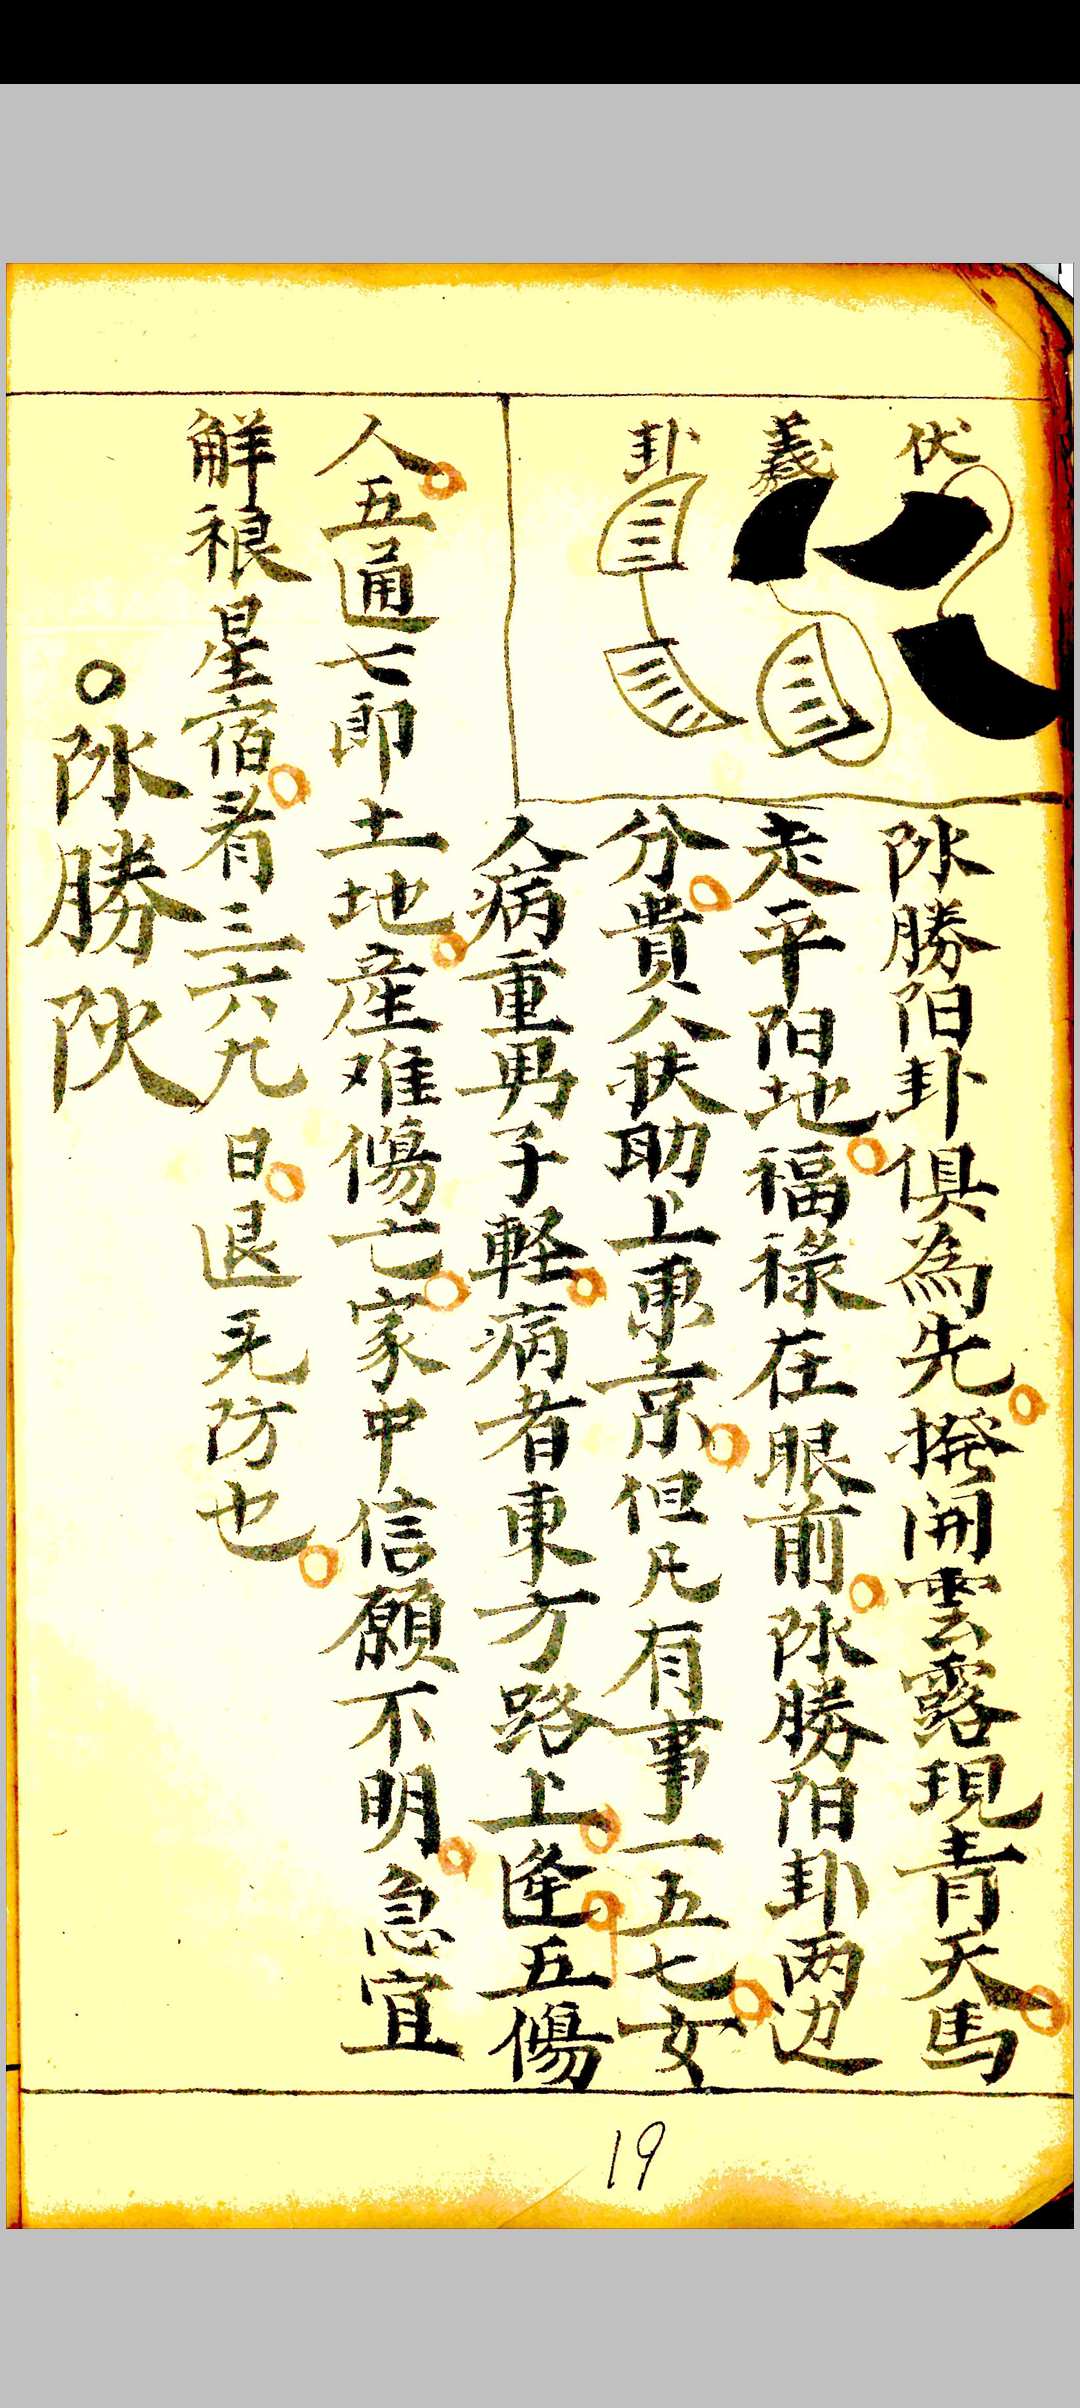 伏
義
卦
阴勝阳卦俱為先撥開雲露現青天馬
走平阳地福祿在眼前阴勝阳卦两边
分貴人扶助上東京但凡有事一五七女
人病重男子軽病者東方路上逢五傷
人五通七郎土地産难傷亡家中信願不明急宜
解禳星宿者三六九日退无防也
○阴勝阴
19